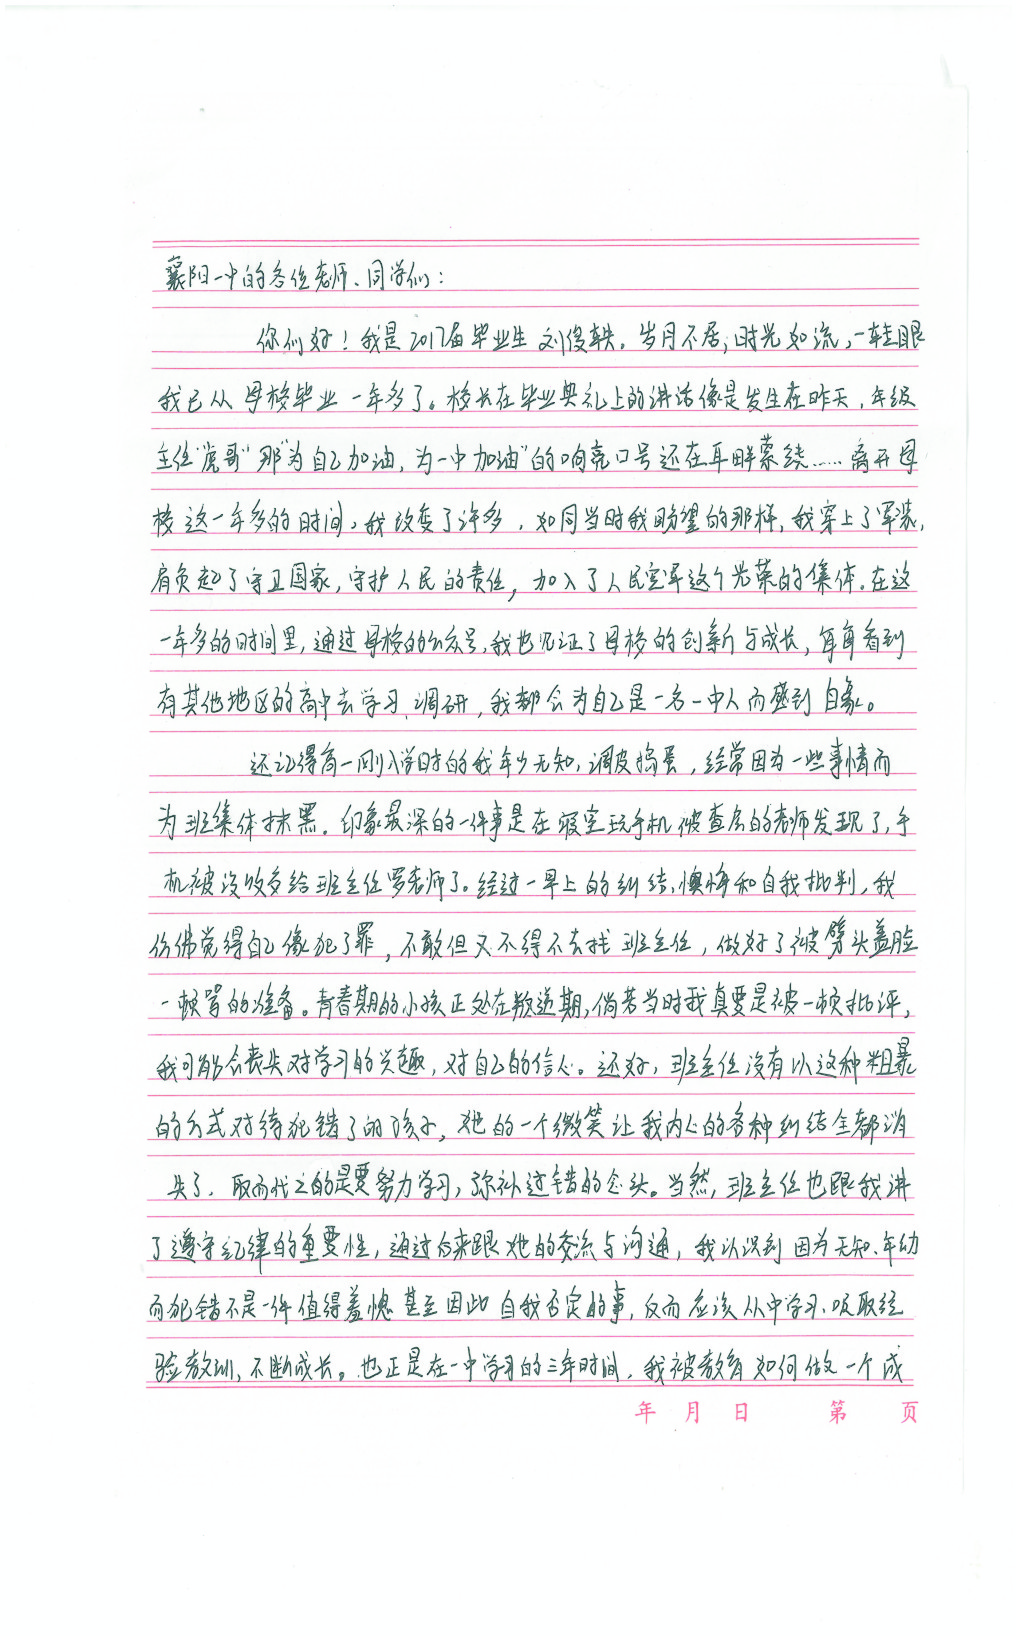 襄阳一中的各位老师、同学们：
你们好！我是2017届毕业生刘俊轶。岁月不居，时光如流，一转眼
我已从母校毕业一年多了。校长在毕业典礼上的讲话像是发生在昨天，年级
主任“虎哥”那“为自己加油，为一中加油”的响亮口号还在耳畔萦绕……离开母
校这一年多的时间，我改变了许多，如同当时我盼望的那样，我穿上了军装，
肩负起了守卫国家，守护人民的责任，加入了人民空军这个光荣的集体。在这
一年多的时间里，通过母校的公众号，我也见证了母校的创新与成长，每每看到
有其他地区的高中去学习、调研，我都会为自己是一名一中人而感到自豪。
还记得高一刚入学时的我年少无知，调皮捣蛋，经常因为一些事情而
为班集体抹黑。印象最深的一件事是在寝室玩手机被查房的老师发现了，手
机被没收交给班主任罗老师了。经过一早上的纠结、懊悔和自我批判，我
仿佛觉得自己像犯了罪，不敢但又不得不去找班主任，做好了被劈头盖脸
一顿骂的准备。青春期的小孩正处在叛逆期，倘若当时我真要是被一顿批评，
我可能会丧失对学习的兴趣，对自己的信心。还好，班主任没有以这种粗暴
的方式对待犯错了的孩子，她的一个微笑让我内心的各种纠结全都消
失了，取而代之的是要努力学习，弥补过错的念头。当然，班主任也跟我讲
了遵守纪律的重要性，通过后来跟她的交流与沟通，我认识到因为无知、年幼
而犯错不是一件值得羞愧甚至因此自我否定的事，反而应该从中学习、吸取经
验教训，不断成长。也正是在一中学习的三年时间，我被教育如何做一个成
年 月 日 第 页